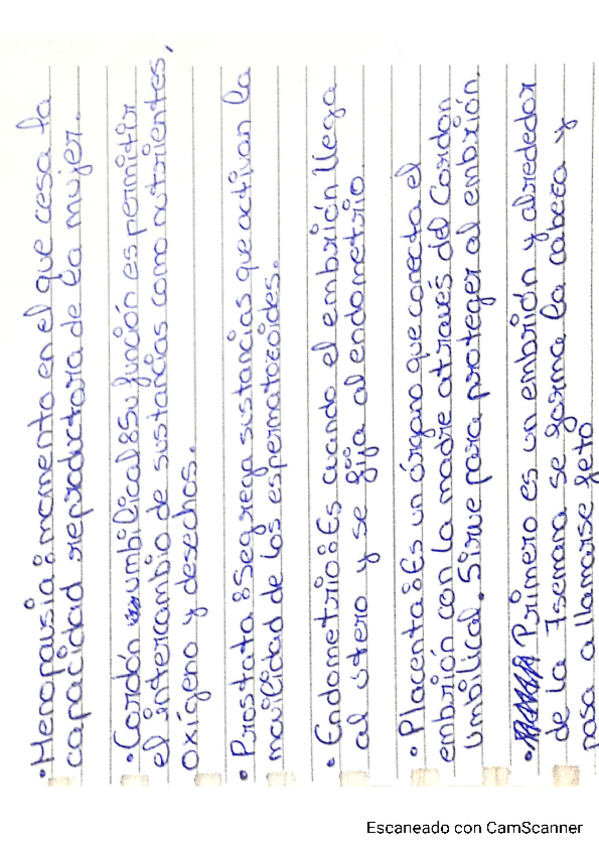 • Menopausia: momento en el que cesa la
capacidad reproductora de la mujer.
• Cordón umbilical: Su función es permitir
el intercambio de sustancias como nutrientes,
oxígeno y desechos.
• Prostata: Segrega sustancias que activan la
movilidad de los espermatozoides.
• Endometrio: Es cuando el embrión llega
al útero y se fija al endometrio.
• Placenta: Es un órgano que conecta el
embrión con la madre através del Cordón
umbilical. Sirve para proteger al embrión.
• Primero es un embrión y alrededor
de la 7 semana se forma la cabeza y
pasa a llamarse feto
Escaneado con CamScanner